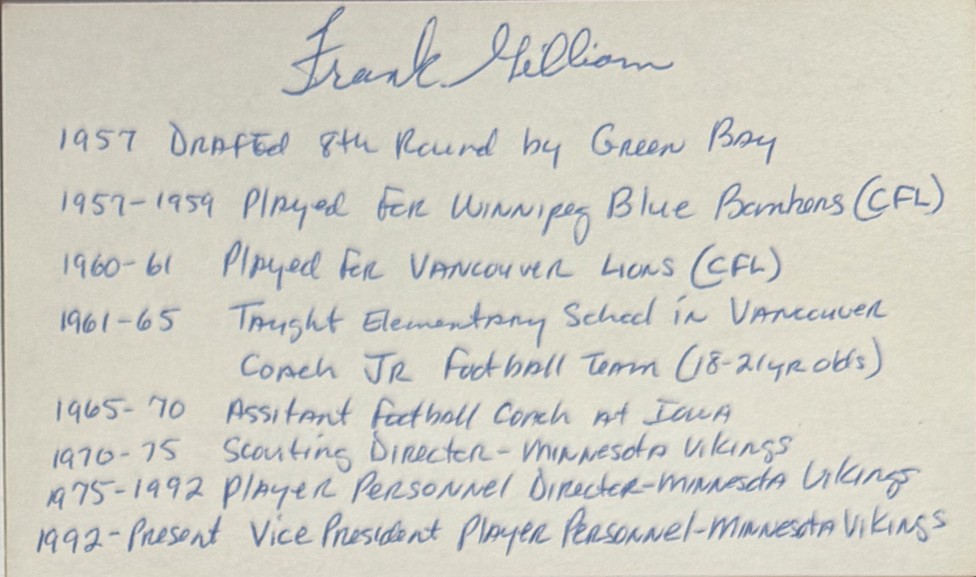 Frank Gilliam
1957 Drafted 8th Round by Green Bay
1957-1959 Played For Winnipeg Blue Bombers (CFL)
1960-61 Played For Vancouver Lions (CFL)
1961-65 Taught Elementrany School in Vancouver
Coach JR Football Team (18-21 yr olds)
1965-70 Assitant Football Coach at Iowa
1970-75 Scouting Director-Minnesota Vikings
1975-1992 Player Personnel Director-Minnesota Vikings
1992-Present Vice President Player Personnel-Minnesota Vikings